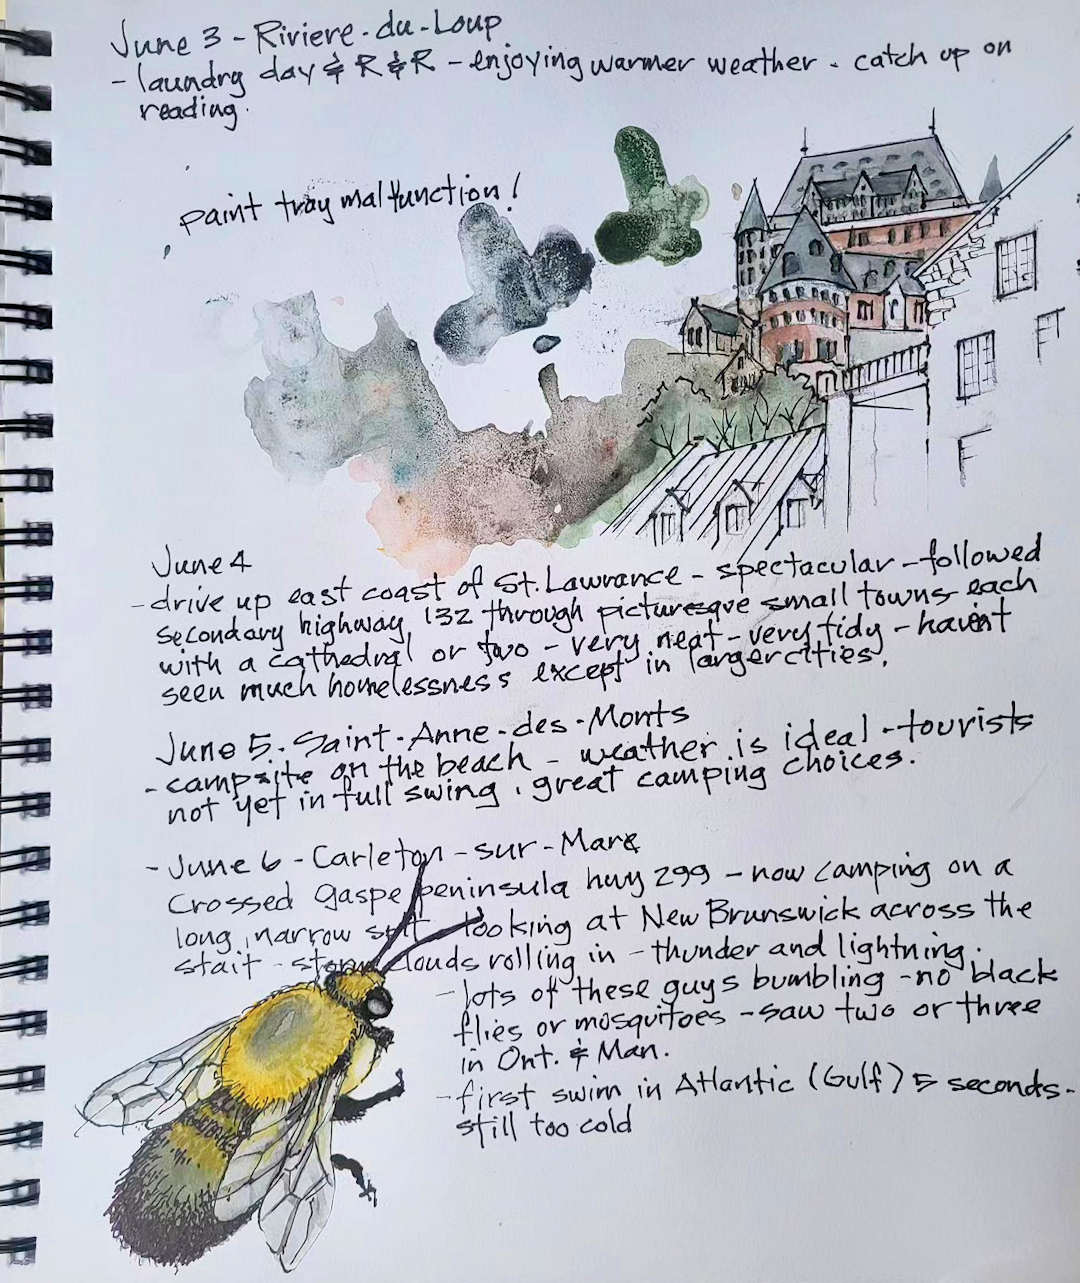 June 3 - Riviere-du-Loup
- laundry day & R & R - enjoying warmer weather - catch up on
reading.
paint tray malfunction!
June 4
- drive up east coast of St. Lawrance - spectacular - followed
secondary highway 132 through picturesque small towns each
with a cathedral or two - very neat - very tidy - havent
seen much homelessness except in larger cities.
June 5. Saint-Anne-des-Monts
- campsite on the beach - weather is ideal - tourists
not yet in full swing, great camping choices.
- June 6 - Carleton-sur-Mare
Crossed gaspe peninsula hwy 299 - now camping on a
long, narrow spit - looking at New Brunswick across the
stait - storm clouds rolling in - thunder and lightning.
- lots of these guys bumbling - no black
flies or mosquitoes - saw two or three
in Ont. & Man.
- first swim in Atlantic (Gulf) 5 seconds -
still too cold